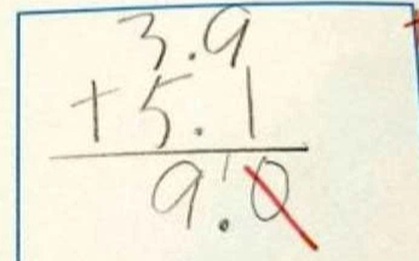 3.9
+ 5.1
9.0